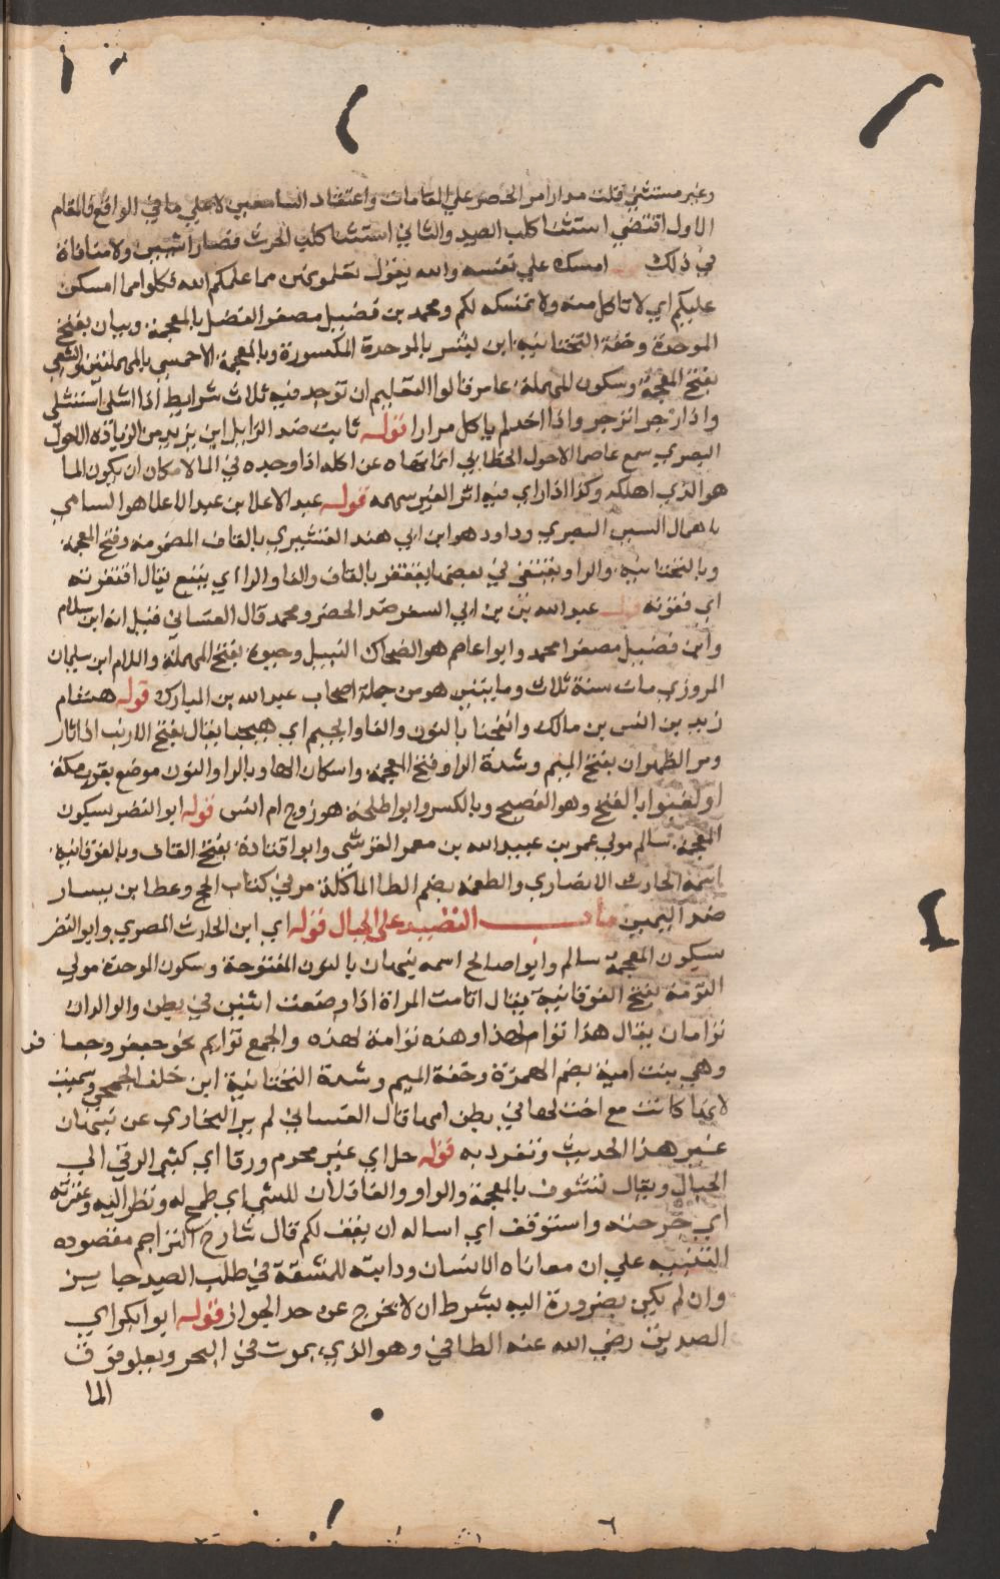 وغير مستثنى قلت مدار امر الحصر علي المقامات واعتقاد السامعين لا علي ما في الواقع فالمقام
الاول اقتضي استثنا كلب الصيد والثاني استثنا كلب الحرث فصارا شيين ولا منافاة
في ذلك امسك علي نفسه والله يقول تعلمونهن مما علمكم الله فكلوا مما امسكن
عليكم اي لا تاكل منه ولا تمسكه لكم ومحمد بن فضيل مصغر الفضل بالمعجمة وبيان بفتح
الموحدة وخفة التحتانية ابن بشر بالموحدة المكسورة وبالمعجمة الاحمسي بالمهملتين والشعبي
بفتح المعجمة وسكون المهملة عامر قالوا التعليم ان توجد فيه ثلاث شرايط اذا اشلي استشلي
واذا زجر انزجر واذا اخذ لم ياكل مرارا قوله ثابت ضد الزايل ابن يزيد من الزيادة الاحول
البصري سمع عاصما الاحول الخطابي انما نهاه عن اكله اذا وجده في الما لامكان ان يكون الما
هو الذي اهلكه وكذا اذا راي فيه اثر الغير سهمه قوله عبد الاعلا بن عبد الاعلا هو السامي
باهمال السين البصري وداود هو ابن ابي هند القشيري بالقاف المضمومة وفتح المعجمة
وبالتحتانية والرا ويقتفي في بعضها يفتقر بالقاف والفا والرا اي يتبع يقال اقتفرته
اي قفوته قوله عبد الله بن ابي السفر ضد الحضر ومحمد قال الغساني قيل انه ابن سلام
وابن فضيل مصغرا محمد وابو عاصم هو الضحاك النبيل وحيوة بفتح المهملة واللام ابن سليمان
المروزي مات سنة ثلاث ومايتين هو من جملة اصحاب عبد الله بن المبارك قوله هشام
زيد بن انس بن مالك وانفجنا بالنون والفا والجيم اي هيجنا يقال ينفج الارنب اذا ثار
ومر الظهران بفتح الميم وشدة الرا وفتح المعجمة واسكان الها وبالرا والنون موضع بقرب مكة
او لغبوا بالفتح وهو الفصيح وبالكسر وابو طلحة هو زوج ام انس قوله ابو النضر بسكون
المعجمة سالم مولي عمر بن عبيد الله بن معمر القرشي وابو قتادة بفتح القاف وبالفوقانية
اسمه الحارث الانصاري والطعمة بضم الطا الماكلة مر في كتاب الحج وعطا بن يسار
ضد اليمين باب التصيد علي الجبال قوله اي ابن الحارث المصري وابو النضر
بسكون المعجمة سالم وابو صالح اسمه نبهان بالنون المفتوحة وسكون الموحدة مولي
التومة بفتح الفوقانية يقال اتامت المراة اذا وضعت اثنين في بطن والولدان
توامان يقال هذا توام لهذا وهذه توامة لهذه والجمع توايم نحو جعفر وجعافر
وهي بنت امية بضم الهمزة وخفة الميم وشدة التحتانية ابن خلف الجمحي وسميت
لانها كانت مع اخت لها في بطن امها قال الغساني لم يرو البخاري عن نبهان
غير هذا الحديث وتفرد به قوله حل اي غير محرم ورقا اي كثير الرقي الي
الجبال ويقال تشوف بالمعجمة والواو والفا فلان للشي اي طمح له ونظر اليه وعقرته
اي جرحته واستوقف اي اساله ان يقف لكم قال شارح التراجم مقصوده
التنبيه علي ان معاناه الانسان ودابته للمشقة في طلب الصيد جايز
وان لم يكن بضرورة اليه بشرط ان لا يخرج عن حد الجواز قوله ابو بكر اي
الصديق رضي الله عنه الطافي وهو الذي يموت في البحر ويعلو فوق
الما
٦